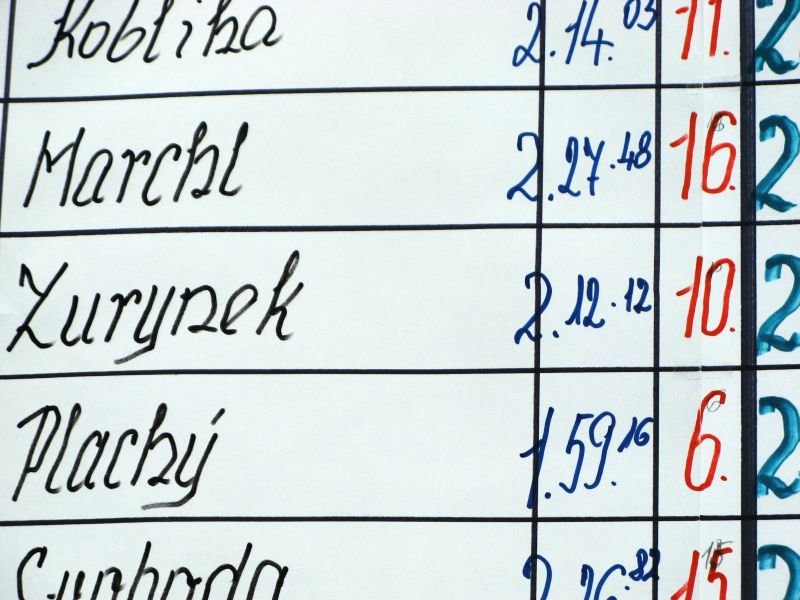 Kobliha 2.14.03 11. 2
Marchl 2.27.48 16. 2
Zurynek 2.12.12 10. 2
Plachý 1.59.16 6. 2
Svoboda 2.26.82 15 2